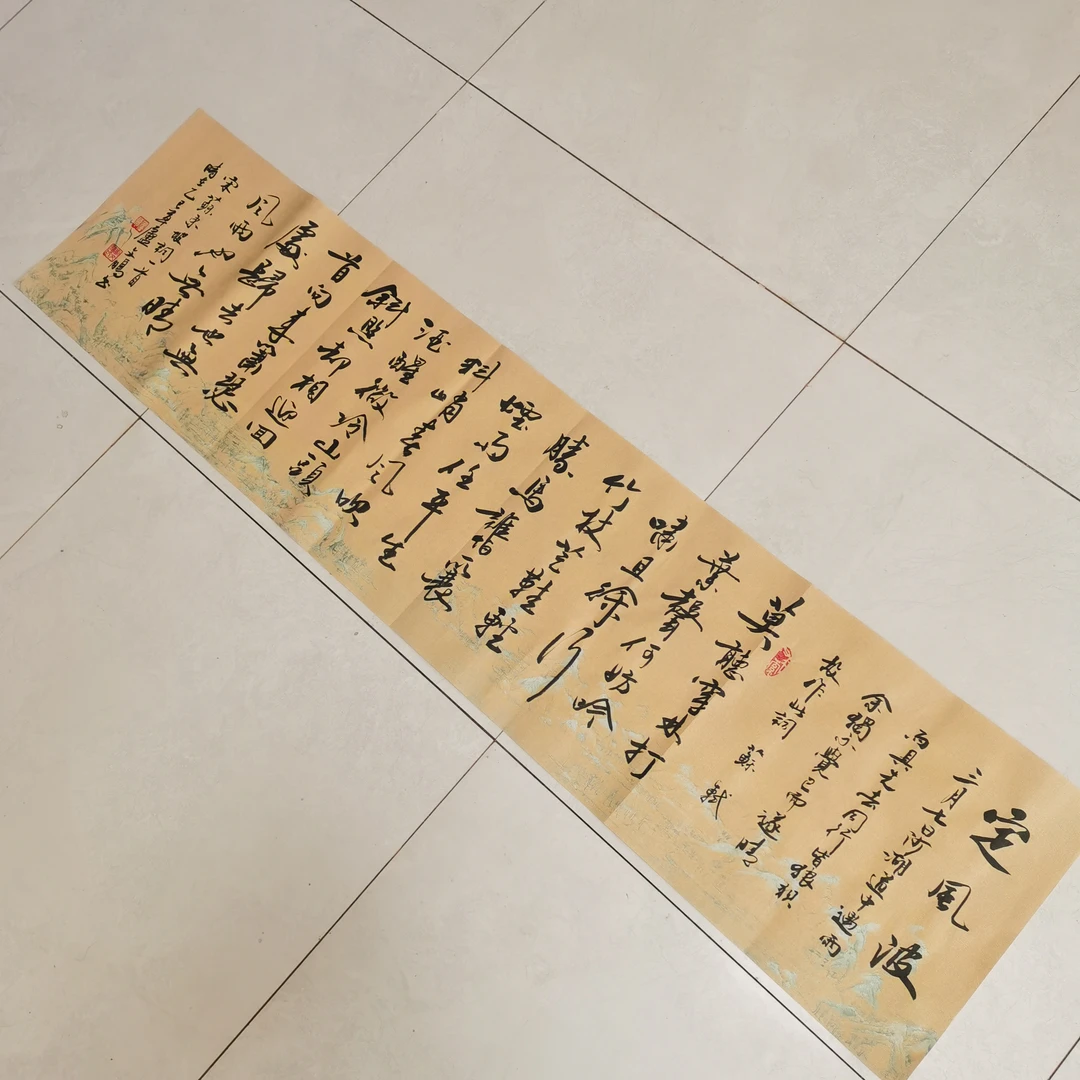 定風波
三月七日沙湖道中遇雨
雨具先去同行皆狼狽
余獨不覺已而遂晴
故作此詞 蘇軾
莫聽穿林打
葉聲何妨吟
嘯且徐行
竹杖芒鞋輕
勝馬誰怕一蓑
煙雨任平生
料峭春風吹
酒醒微冷山頭
斜照却相迎回
首向來蕭瑟
處歸去也無
風雨也無晴
宋蘇東坡詞一首
時在乙巳年盧文鵬書